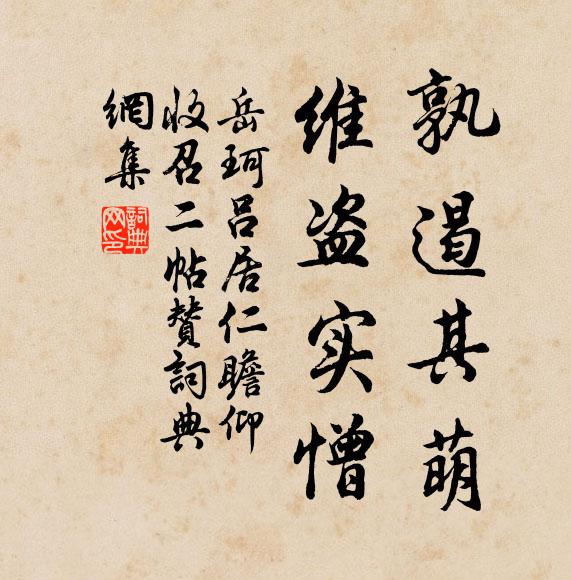 孰遏其萌
维盗实憎
岳珂吕居仁瞻仰
收召二帖赞词典
網集
詞典
网印